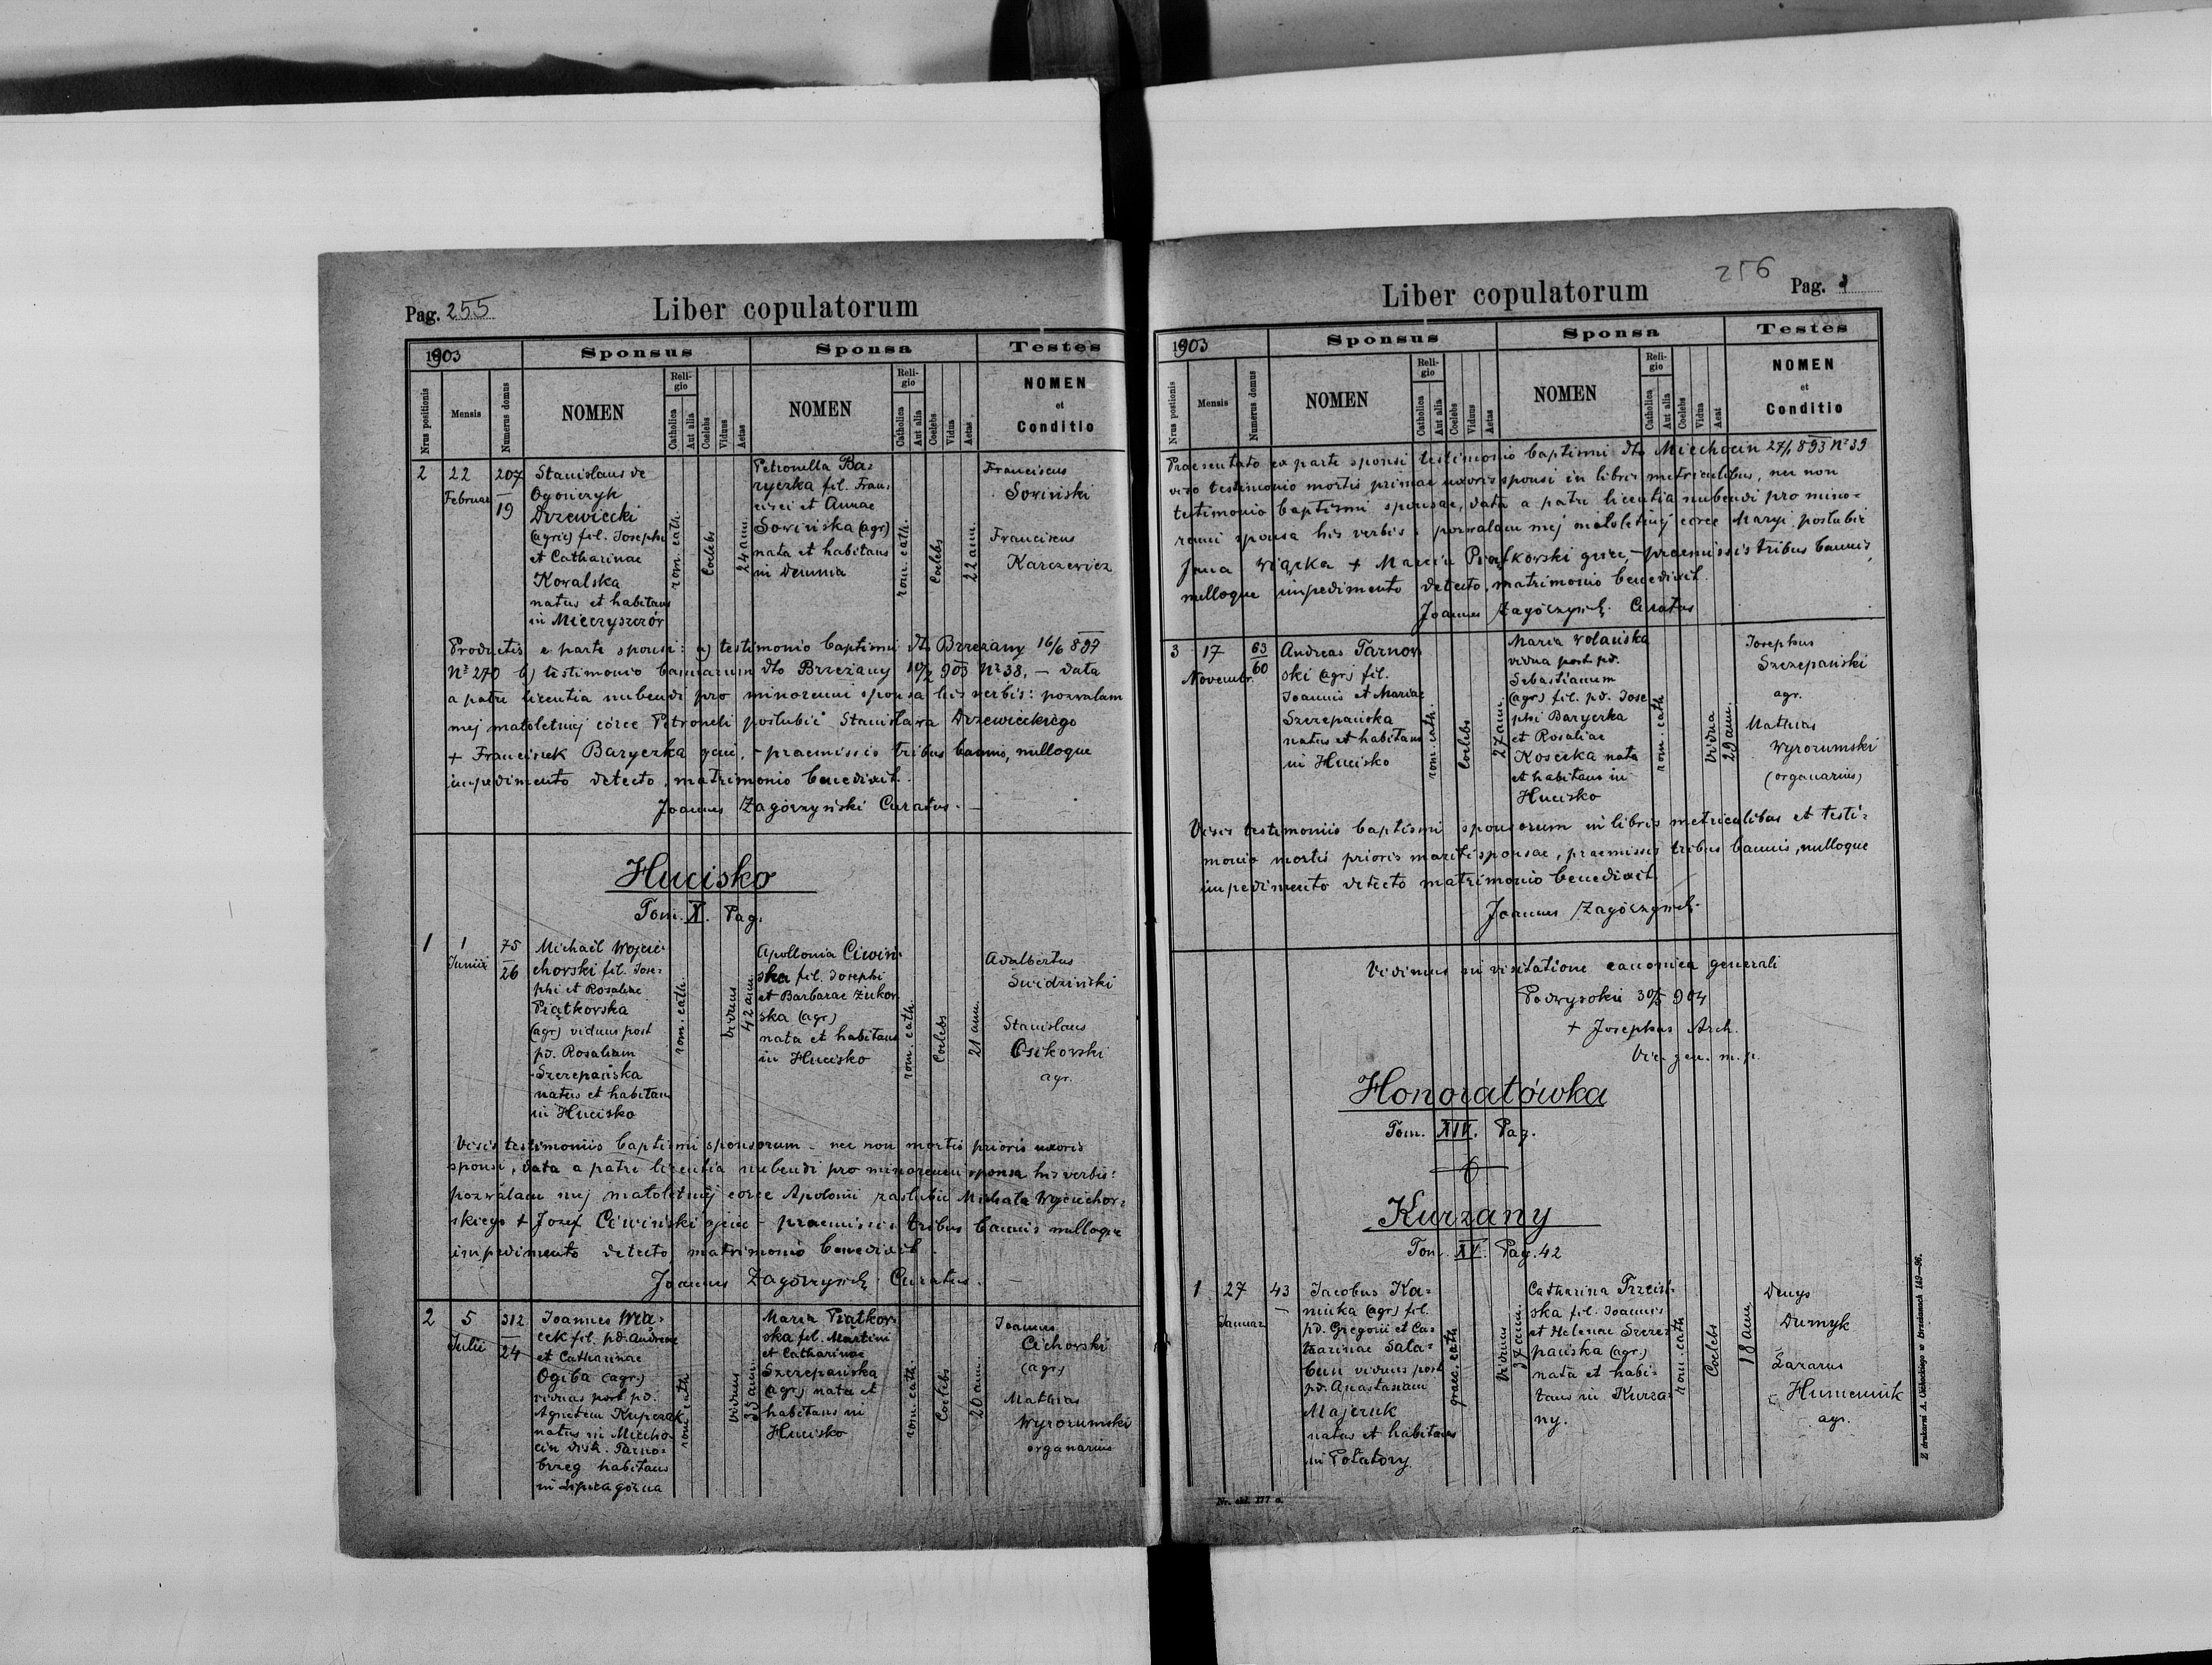 Pag. 255
Liber copulatorum
1903
Sponsus
Sponsa
Testes
Nrus positionis
Mensis
Numerus domus
NOMEN
Reli-
gio
Catholica
Aut alia
Coelebs
Viduus
Aetas
NOMEN
Reli-
gio
Catholica
Aut alia
Coelebs
Vidua
Aetas
NOMEN
et
Conditio
2
22
Februar
207
19
Stanislaus de
Ogończyk
Drzewiecki
(agric) fil. Josephi
et Catharinae
Kowalska
natus et habitans
in Mieczyszczów
rom. cath.
Coelebs
24 ann.
Petronella Ba-
ryczka fil. Fran-
cisci et Annae
Sowińska (agr)
nata et habitans
in Demnia
rom. cath.
Coelebs
22 ann.
Franciscus
Sowiński
Franciscus
Karczewicz
Productis e parte sponsi: a) testimonio baptismi dto Brzeżany 16/6 897
No 270 b) testimonio bannorum dto Brzeżany 10/2 903 No 38, – data
a patre licentia nubendi pro minorenni sponsa his verbis: pozwalam
mej małoletniej córce Petroneli poślubić Stanisława Drzewieckiego
+ Franciszek Baryczka – praemissis tribus bannis, nulloque
impedimento detecto, matrimonio benedixit.
Joannes Zagórzyński Curatus. –
Hucisko
Tom. X. Pag.
1
1
Junii
75
26
Michael Wojcie-
chowski fil. Jose-
phi et Rosaliae
Piątkowska
(agr) viduus post
pd. Rosaliam
Szczepańska
natus et habitans
in Hucisko
rom. cath.
viduus
42 ann.
Apollonia Ciwiń-
ska fil. Josephi
et Barbarae Żukow
ska (agr)
nata et habitans
in Hucisko
rom. cath
Coelebs
21 ann.
Adalbertus
Świdziński
Stanislaus
Osikowski
agr.
Visis testimoniis baptismi sponsorum – nec non mortis prioris uxoris
sponsi, data a patre licentia nubendi pro minorenni sponsa his verbis:
pozwalam mej małoletniej córce Apolonii zaślubić Michała Wojciechow-
skiego + Józef Ciwiński ojciec – praemissis tribus bannis nulloque
impedimento detecto, matrimonio benedixit.
Joannes Zagórzyński Curatus. –
2
5
Julii
312
24
Joannes Wią-
cek fil. pd. Andreae
et Catharinae
Ogiba (agr.)
viduus post pd.
Agnetem Kupczak
natus in Miecho
cin distr. Tarno-
brzeg habitans
in Lipica górna
rom. cath
viduus
Maria Piątkow-
ska fil. Martini
et Catharinae
Szczepańska
(agr) nata et
habitans in
Hucisko
rom. cath.
Coelebs
20 ann.
Joannes
Cichowski
(agr)
Mathias
Wyrozumski
organarius
256
Liber copulatorum
Pag.
1903
Sponsus
Sponsa
Testes
Nrus postionis
Mensis
Numerus domus
NOMEN
Reli-
gio
Catholica
Aut alia
Coelebs
Viduus
Aetas
NOMEN
Reli-
gio
Catholica
Aut alia
Coelebs
Vidua
Aeat
NOMEN
et
Conditio
Praesentato ex parte sponsi testimonio baptismi dto Miechocin 27/1 893 No 39
viso testimonio mortis primae uxoris sponsi in libris metricalibus, nec non
testimonio baptismi sponsae, data a patre licentia nubendi pro mino-
renni sponsa his verbis: pozwalam mej małoletniej córce Maryi poślubić
Jana Wiącka + Marcin Piątkowski – praemissis tribus bannis,
nulloque impedimento detecto, matrimonio benedixit.
Joannes Zagórzyński Curatus
3
17
Novembr.
63
60
Andreas Tarnow
ski (agr) fil.
Joannis et Mariae
Szczepańska
natus et habitans
in Hucisko
rom. cath.
Coelebs
27 ann.
Maria Wolańska
vidua post pd.
Sebastianum
(agr) fil. pd. Jose
phi Baryczka
et Rosaliae
Kosecka nata
et habitans in
Hucisko
rom. cath
vidua
29 ann.
Josephus
Szczepański
agr.
Mathias
Wyrozumski
(organarius)
Visis testimoniis baptismi sponsorum in libris metricalibus et testi-
monio mortis prioris mariti sponsae, praemissis tribus bannis, nulloque
impedimento detecto matrimonio benedixit
Joannes Zagórzyński
Vidimus in visitatione canonica generali
Podwysokie 30/5 904
+ Josephus Arch.
Vic. gen. m. p.
Honoratówka
Tom. XIV. Pag.
Kurzany
Tom. XV. Pag. 42
1
27
Januar
43
Jacobus Ka-
minka (agr) fil.
pd. Gregorii et Ca-
tharinae Sala-
bun viduus post
pd. Anastasiam
Majeruk
natus et habitans
in Potutory
graec. cath
viduus
37 ann.
Catharina Trzciń-
ska fil. Joannis
et Helenae Szcze-
pańska (agr.)
nata et habi-
tans in Kurza-
ny.
rom. cath
Coelebs
18 ann.
Denys
Durnyk
Łazarus
Humeniuk
agr.
Z drukarni A. Uichockiego w Brzeżanach 149—96.